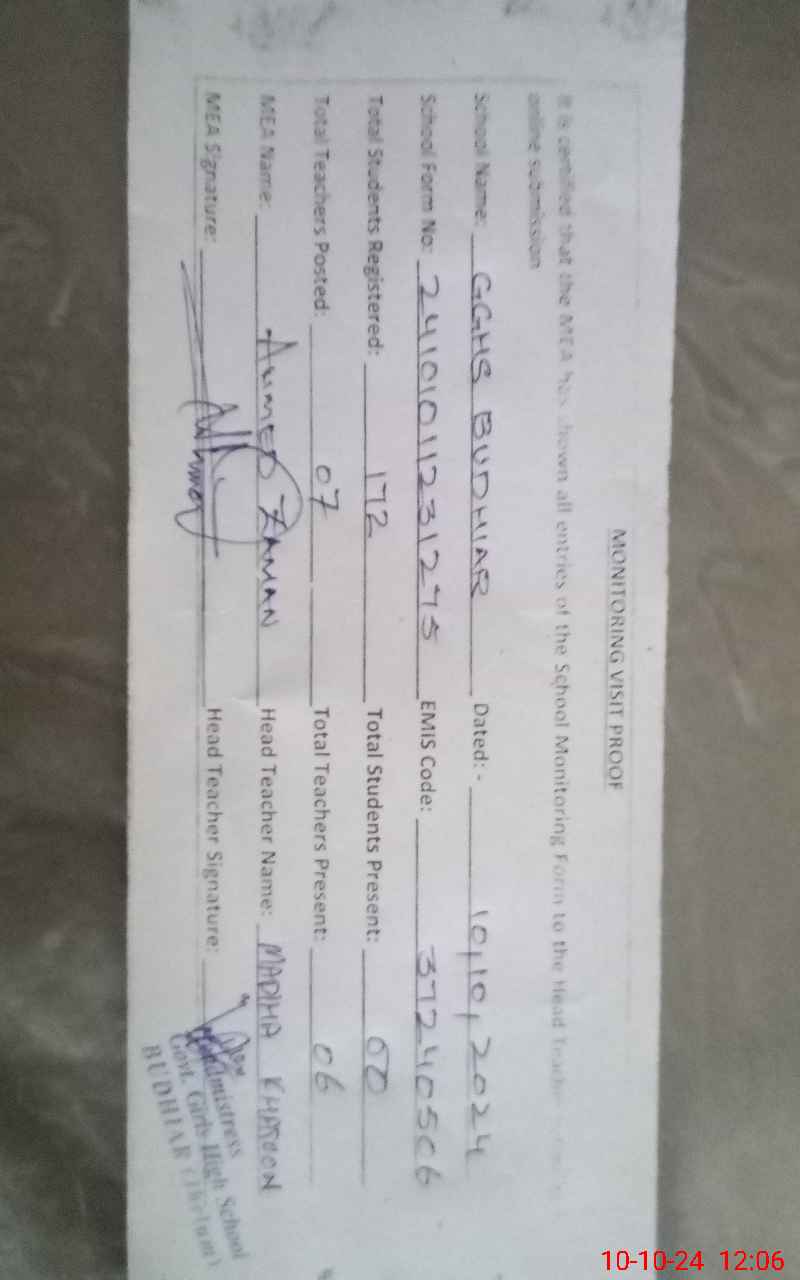 MONITORING VISIT PROOF
It is certified that the MEA has shown all entries of the School Monitoring Form to the Head Teacher
online submission
School Name: GGHS BUDHIAR Dated: - 10,10,2024
School Form No: 2410101123127 5 EMIS Code: 37240506
Total Students Registered: 172 Total Students Present: 60
Total Teachers Posted: 07 Total Teachers Present: 06
MEA Name: AHMED ZAMAN Head Teacher Name: MADIHA KHATOON
MEA Signature: Head Teacher Signature:
Headmistress
Govt. Girls High School
BUDHIAR (Jhelum)
10-10-24 12:06